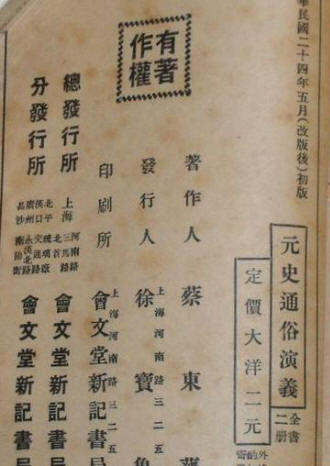 華民國二十四年五月(改版後)初版
元史通俗演義 全書二册
定價大洋二元
外
著作人 蔡東
發行人 徐寶
上海河南路三二五
印刷所 會文堂新記書局
上海河南路三二五
有著作權
總發行所 上海 河南路 三馬路 會文堂新記書局
分發行所 北平 漢口 廣州 長沙 會文堂新記書局